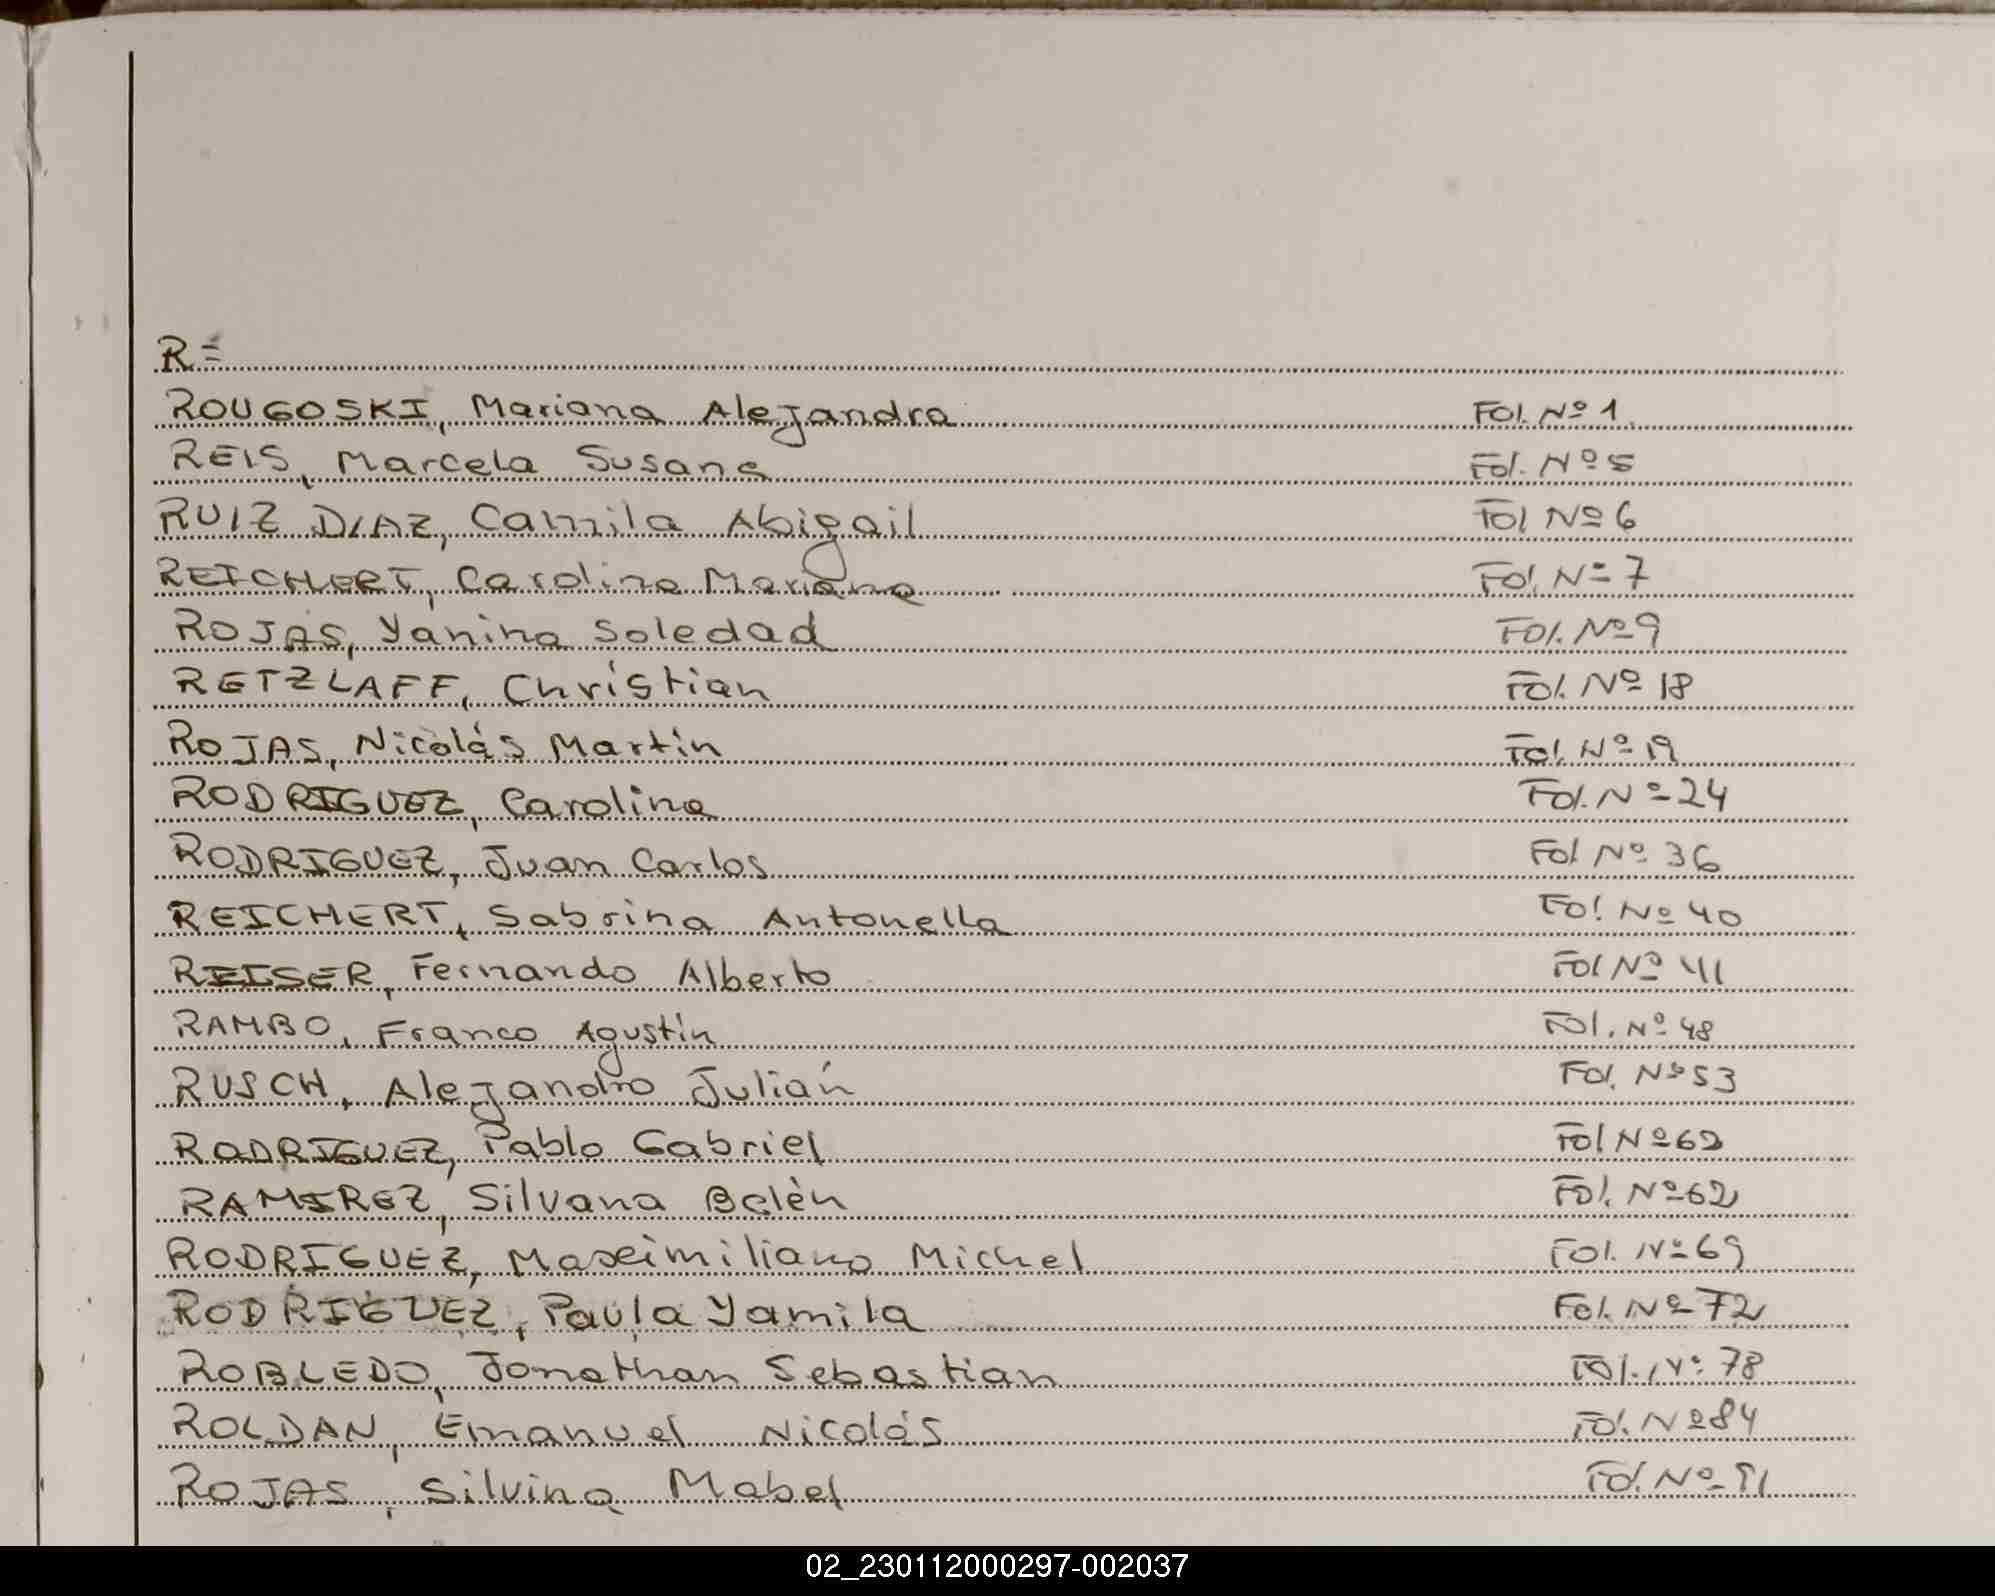 R=
ROUGOSKI, Mariana Alejandra Fol. Nº 1
REIS, Marcela Susana Fol. Nº 5
RUIZ DIAZ, Camila Abigail Fol Nº 6
REICHERT, Carolina Mariana Fol. Nº 7
ROJAS, Yanina Soledad Fol. Nº 9
RETZLAFF, Christian Fol. Nº 18
ROJAS, Nicolás Martín Fol. Nº 19
RODRIGUEZ, Carolina Fol. Nº 24
RODRIGUEZ, Juan Carlos Fol Nº 36
REICHERT, Sabrina Antonella Fol. Nº 40
REISER, Fernando Alberto Fol Nº 41
RAMBO, Franco Agustín Fol. Nº 48
RUSCH, Alejandro Julián Fol. Nº 53
RODRIGUEZ, Pablo Gabriel Fol Nº 62
RAMIREZ, Silvana Belén Fol. Nº 62
RODRIGUEZ, Maximiliano Michel Fol. Nº 69
RODRIGUEZ, Paula Yamila Fol. Nº 72
ROBLEDO, Jonathan Sebastian Fol. Nº 78
ROLDAN, Emanuel Nicolás Fol. Nº 84
ROJAS, Silvina Mabel Fol. Nº
02_230112000297-002037